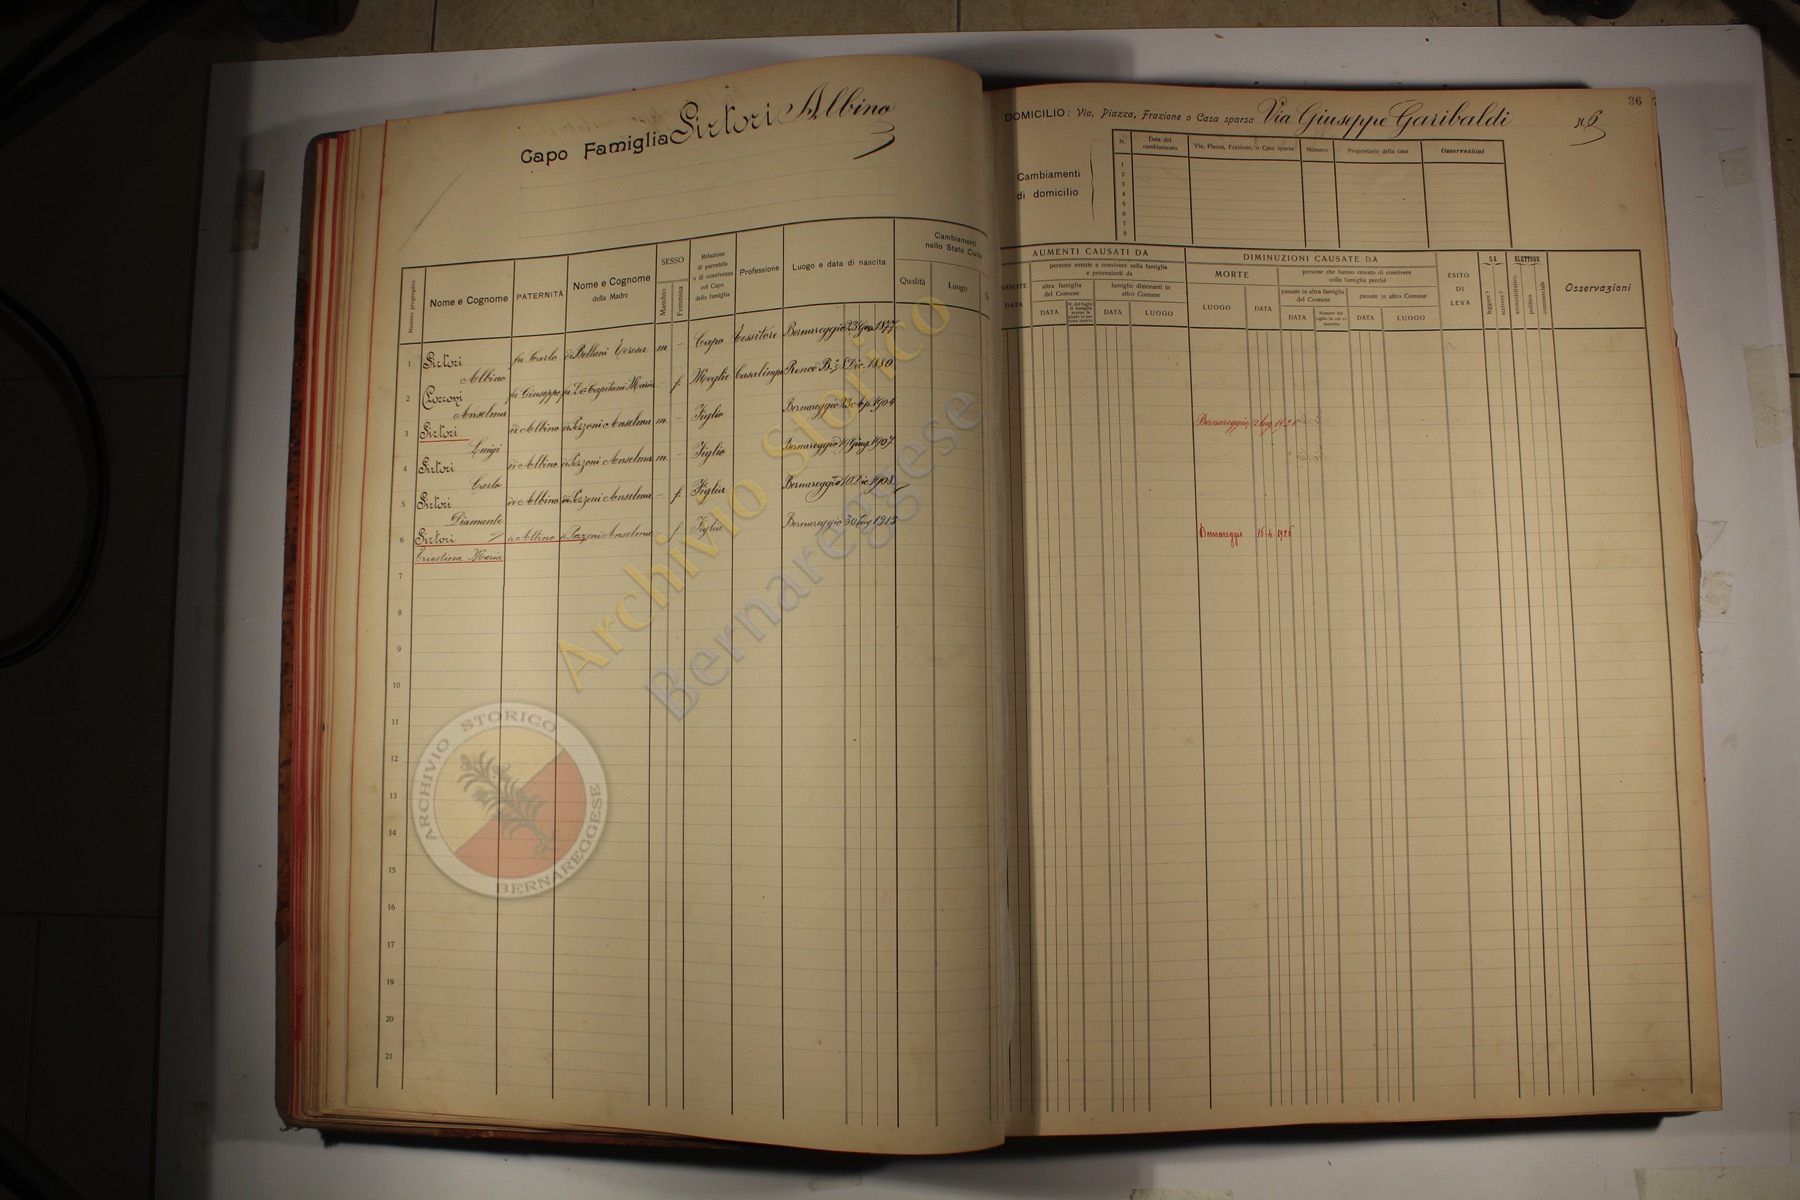 Capo Famiglia Sirtori Albino
36
DOMICILIO: Via, Piazza, Frazione o Casa sparsa Via Giuseppe Garibaldi N. 6
Cambiamenti di domicilio
N. Data del cambiamento Via, Piazza, Frazione, o Casa sparsa Numero Proprietario della casa Osservazioni
1
2
3
4
5
6
7
8
Numero progressivo Nome e Cognome PATERNITÀ Nome e Cognome della Madre SESSO Maschio Femmina Relazione di parentela o di convivenza col Capo della famiglia Professione Luogo e data di nascita Cambiamenti nello Stato Civile Qualità Luogo
NASCITE DATA AUMENTI CAUSATI DA persone venute a convivere nella famiglia e provenienti da altra famiglia del Comune DATA famiglie dimoranti in altro Comune DATA LUOGO
DIMINUZIONI CAUSATE DA MORTE LUOGO DATA persone che hanno cessato di convivere colla famiglia perchè passate in altra famiglia del Comune DATA passate in altro Comune DATA LUOGO
ESITO DI LEVA SA leggere? scrivere? ELETTORE amministrativo politico commerciale Osservazioni
1 Sirtori Albino fu Carlo di Bellani Teresa m. - Capo Tessitore Bernareggio 23 Gen. 1877
2 Pozzoni Anselma fu Giuseppe fu De Capitani Maria - f. Moglie Casalinga Ronco B. 8 Dic. 1880
3 Sirtori Luigi di Albino di Pozzoni Anselma m. - Figlio Bernareggio 23 Ap. 1904 Bernareggio
4 Sirtori Carlo di Albino di Pozzoni Anselma m. - Figlio Bernareggio 19 Giug. 1907
5 Sirtori Diamante di Albino di Pozzoni Anselma - f. Figlia Bernareggio 10 Dic. 1908
6 Sirtori Ernestina Maria di Albino di Pozzoni Anselma f. Figlia Bernareggio 30 1915 Bernareggio 16-4 1926
7
8
9
10
11
12
13
14
15
16
17
18
19
20
21
Archivio Storico
Bernareggese
ARCHIVIO STORICO
BERNAREGGESE